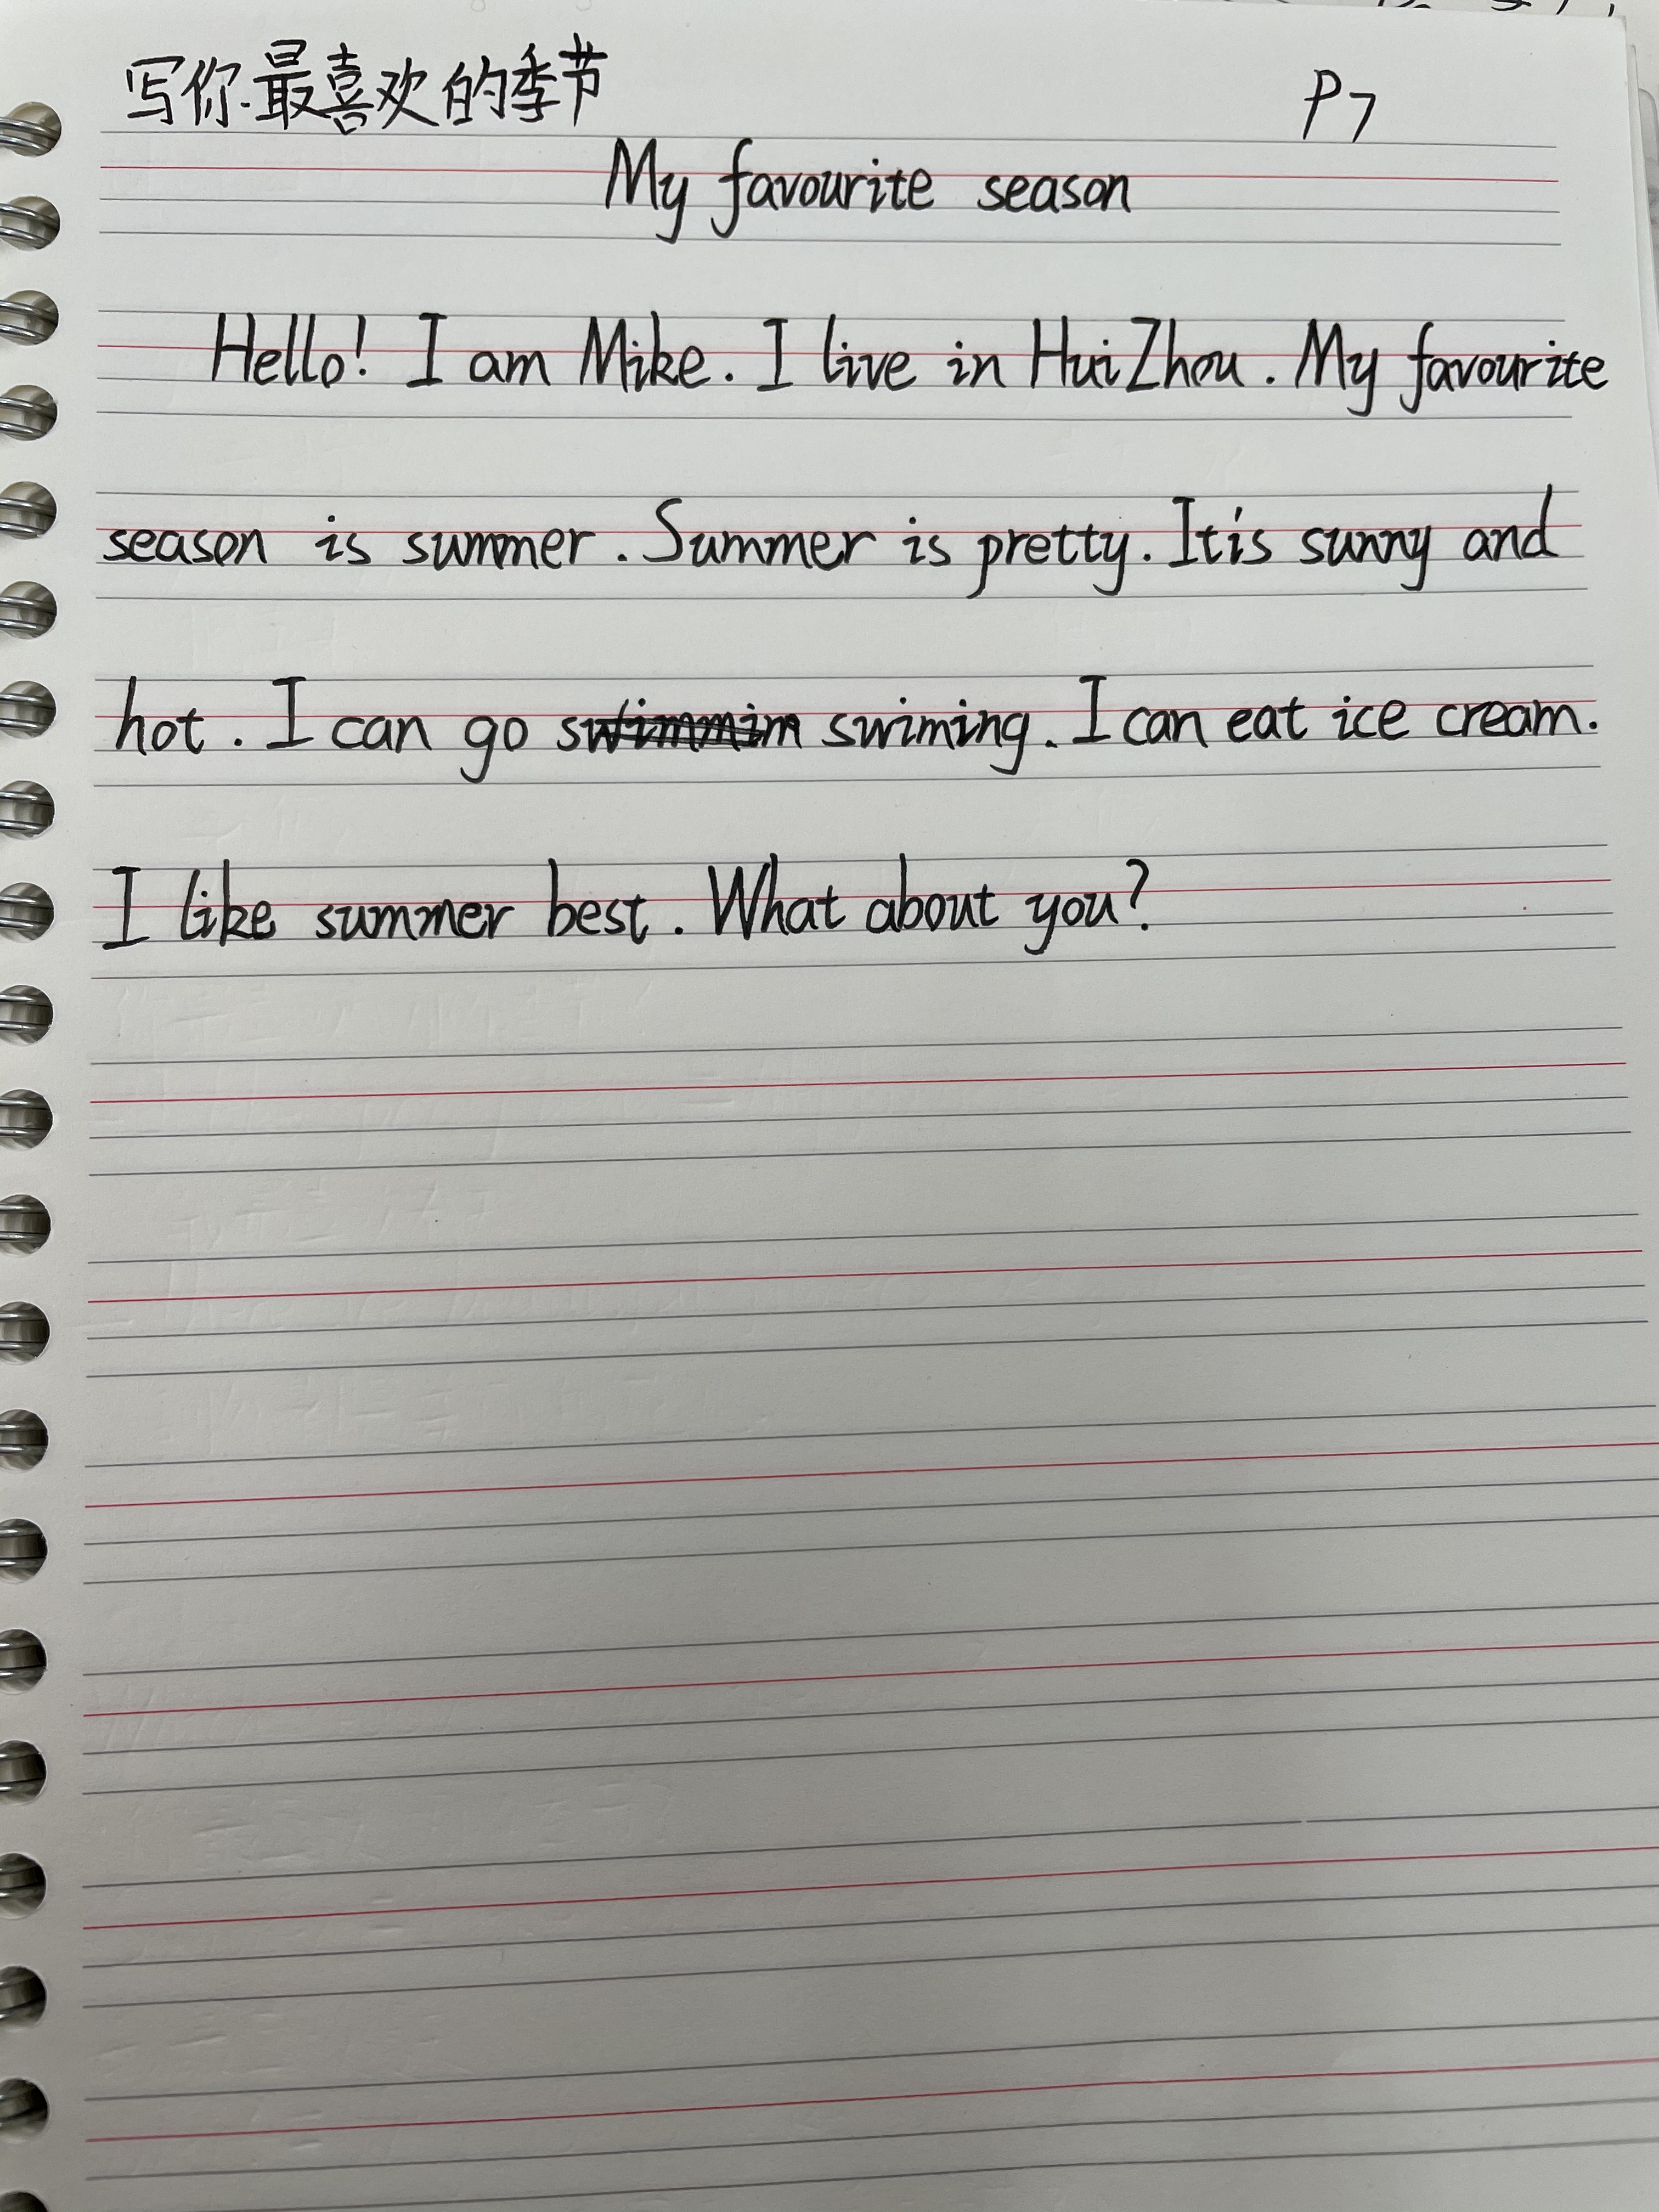 写你最喜欢的季节 P7
My favourite season
Hello! I am Mike. I live in HuiZhou. My favourite
season is summer. Summer is pretty. It's sunny and
hot. I can go swiming. I can eat ice cream.
I like summer best. What about you?